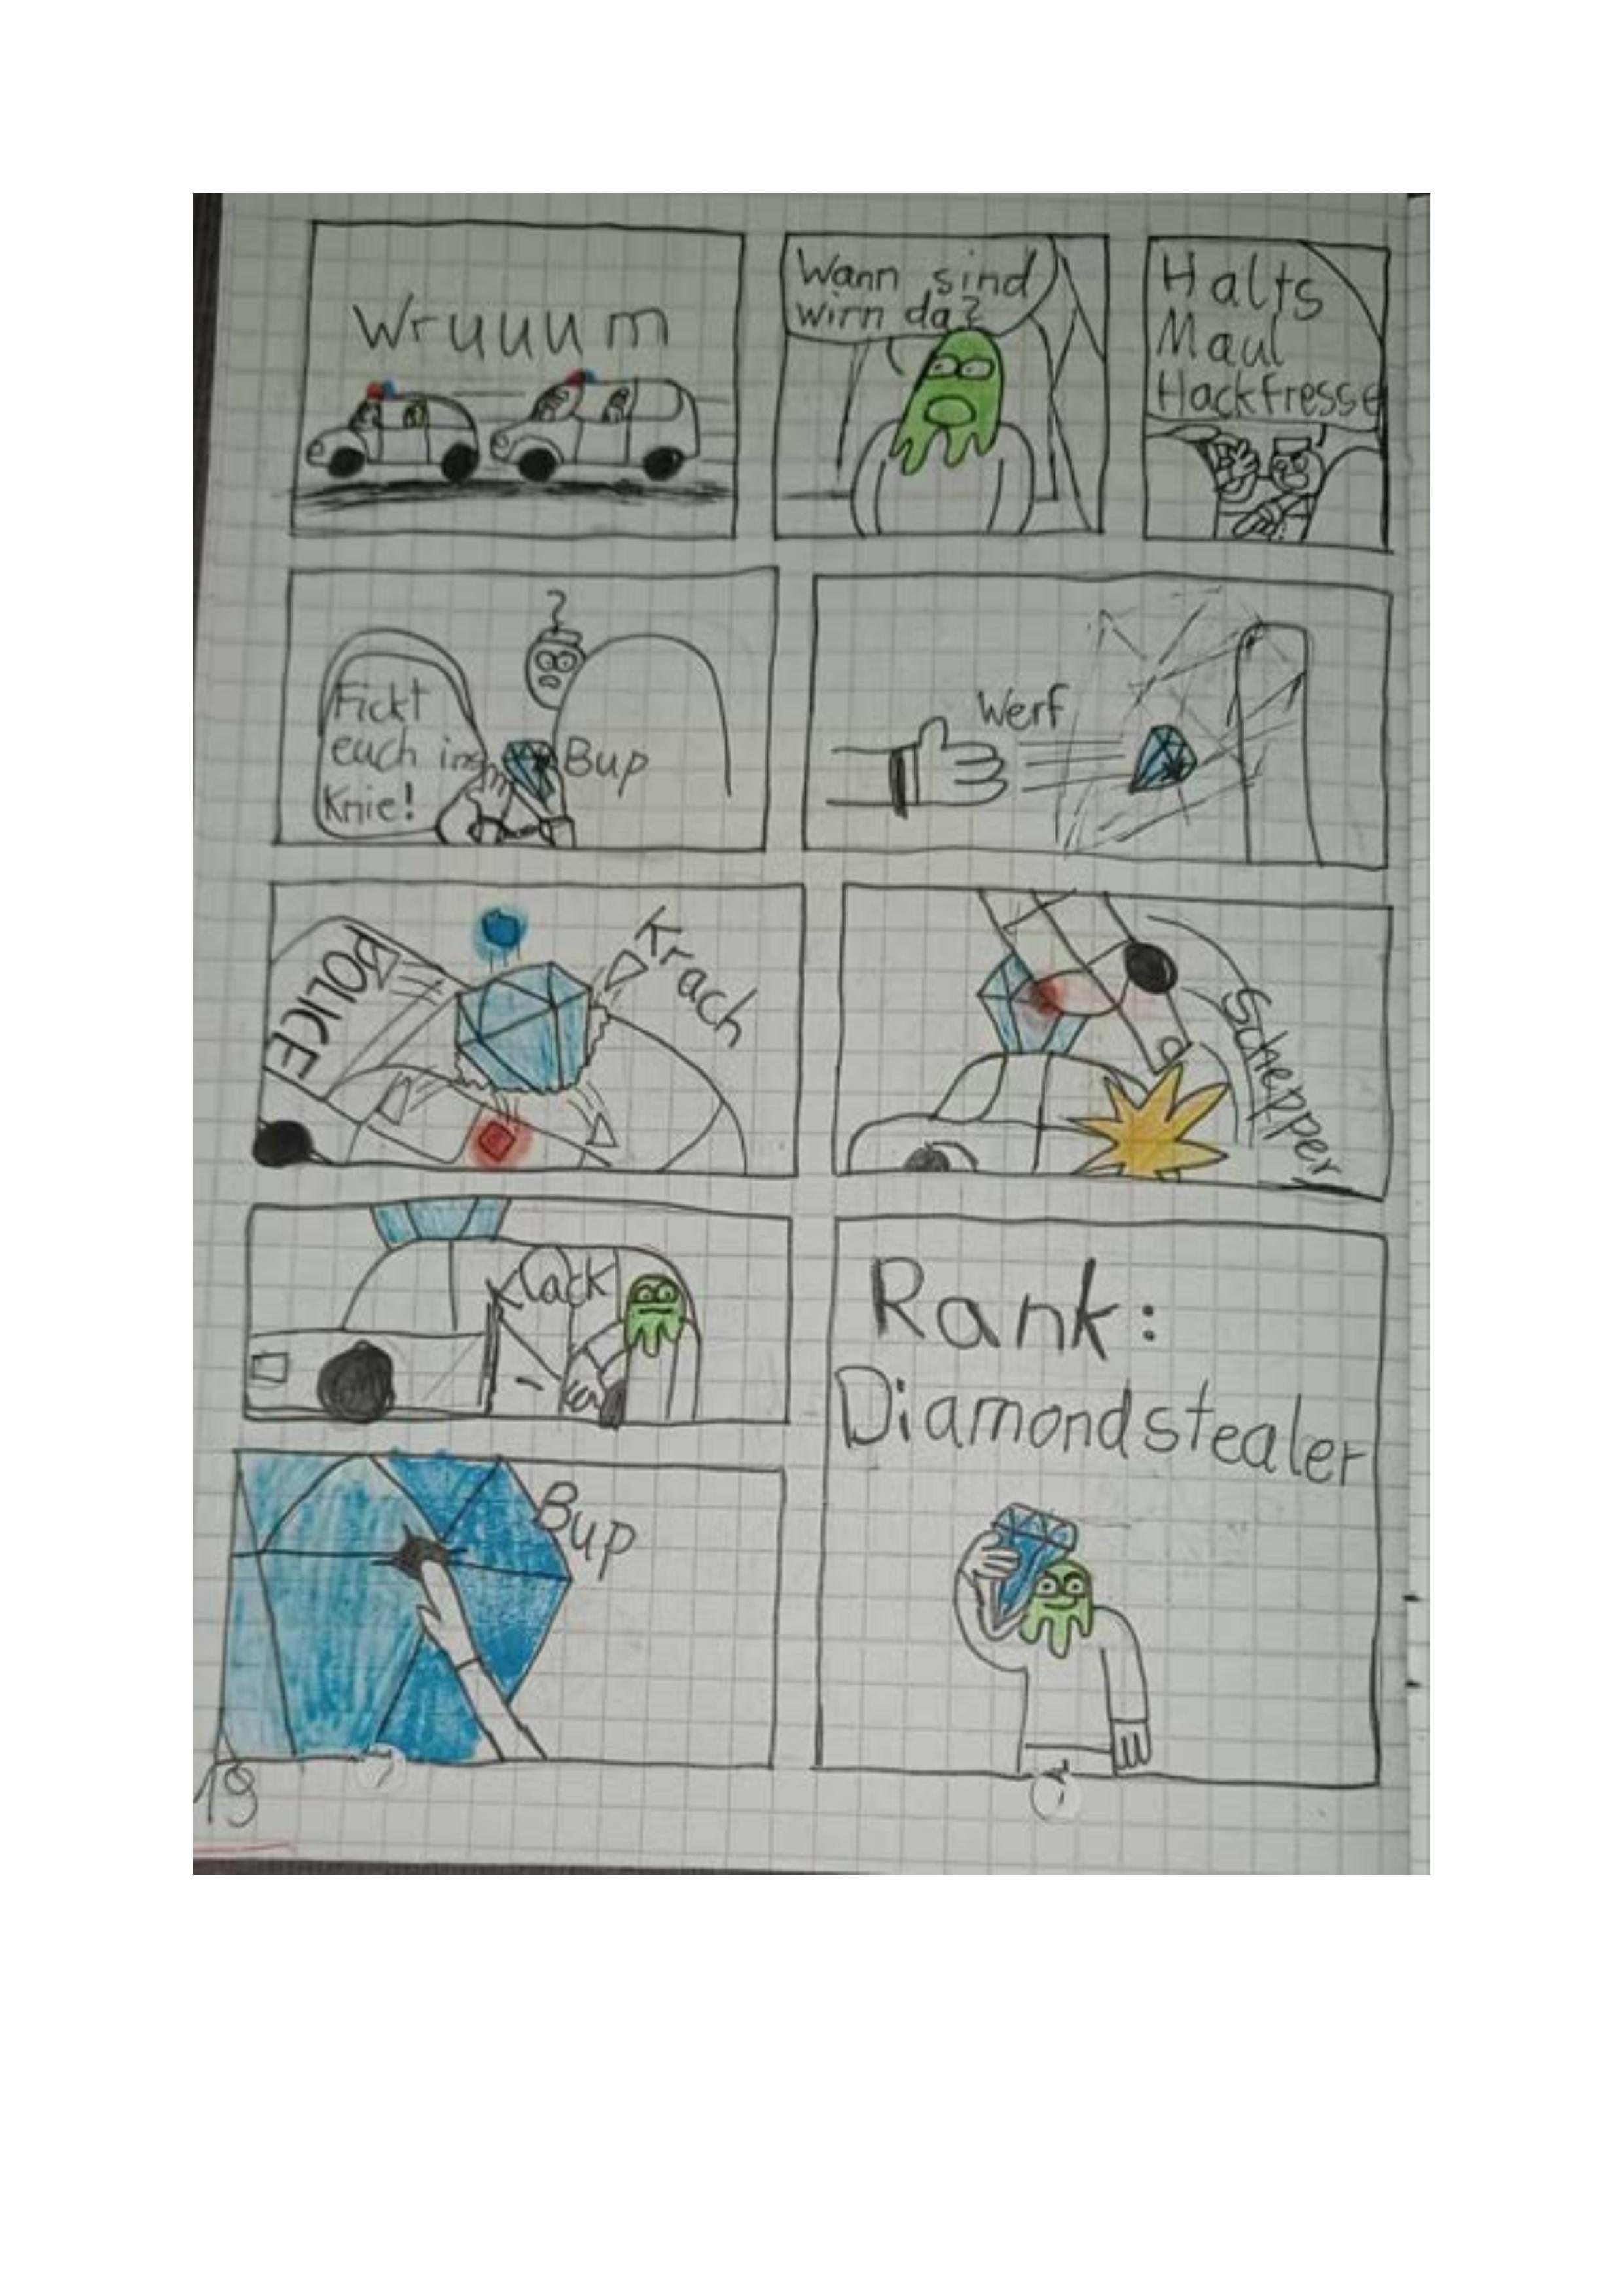 Wruuum
Wann sind
wirn da?
Halts
Maul
Hackfresse
?
Fickt
euch ins
Knie!
Bup
Werf
POLICE
Krach
Schepper
Klack
Bup
Rank:
Diamondstealer
19